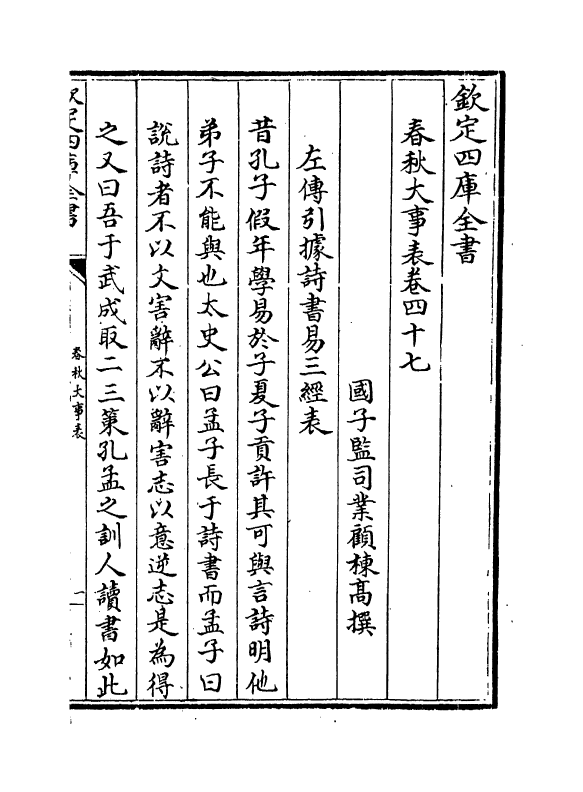 欽定四庫全書
春秋大事表卷四十七
國子監司業顧棟高撰
左傳引據詩書易三經表
昔孔子假年學易於子夏子貢許其可與言詩明他
弟子不能與也太史公曰孟子長于詩書而孟子曰
說詩者不以文害辭不以辭害志以意逆志是為得
之又曰吾于武成取二三策孔孟之訓人讀書如此
欽定四庫全書
春秋大事表
一